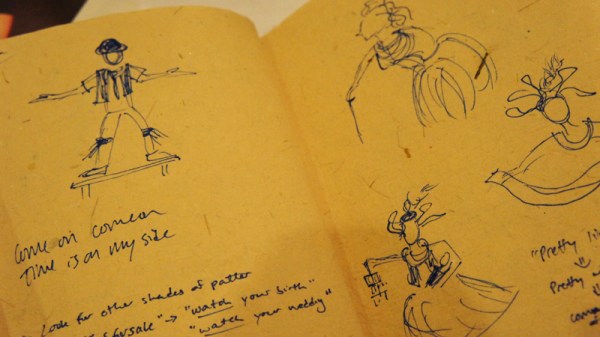 Come on
Time is on my side
Look for other shades of patter
forsale" → "watch your birth"
"watch your
"Pretty li
Pretty